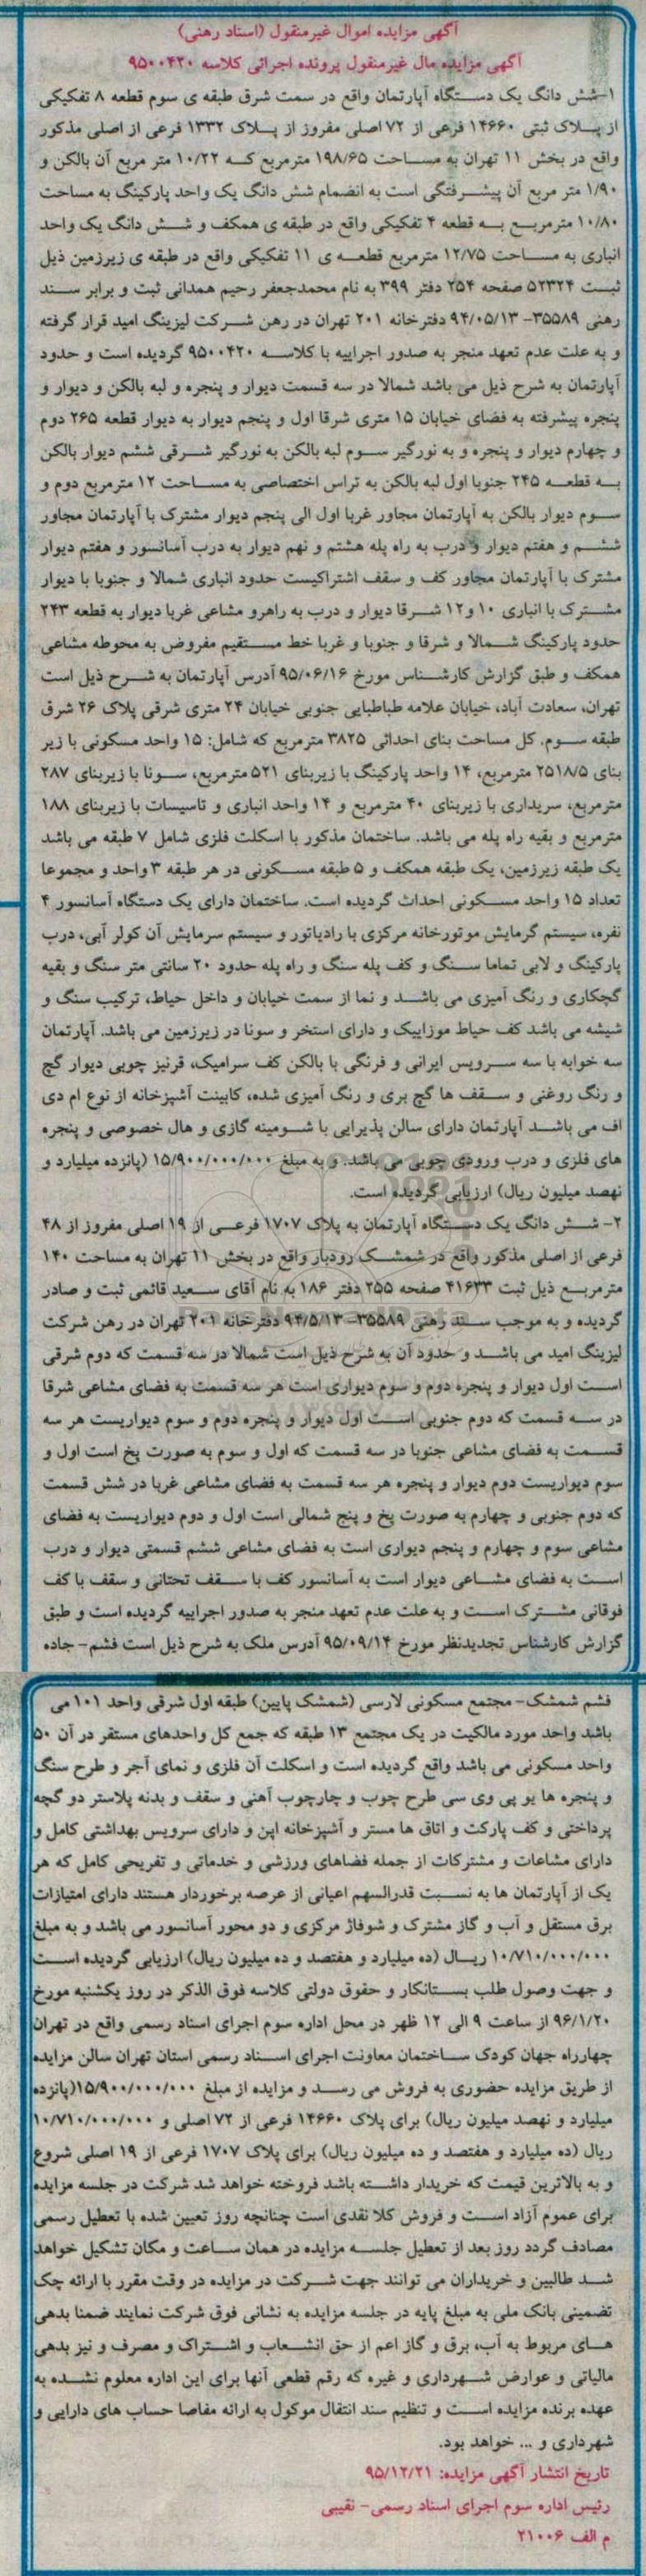 آگهی مزایده اموال غیرمنقول (اسناد رهنی)
آگهی مزایده مال غیرمنقول پرونده اجرائی کلاسه ۹۵۰۰۴۲۰
۱-شش دانگ یک دستگاه آپارتمان واقع در سمت شرق طبقه ی سوم قطعه ۸ تفکیکی
از پلاک ثبتی ۱۴۶۶۰ فرعی از ۷۲ اصلی مفروز از پلاک ۱۳۳۲ فرعی از اصلی مذکور
واقع در بخش ۱۱ تهران به مساحت ۱۹۸/۶۵ مترمربع که ۱۰/۲۲ متر مربع آن بالکن و
۱/۹۰ متر مربع آن پیشرفتگی است به انضمام شش دانگ یک واحد پارکینگ به مساحت
۱۰/۸۰ مترمربع به قطعه ۴ تفکیکی واقع در طبقه ی همکف و شش دانگ یک واحد
انباری به مساحت ۱۲/۷۵ مترمربع قطعه ی ۱۱ تفکیکی واقع در طبقه ی زیرزمین ذیل
ثبت ۵۲۳۲۴ صفحه ۲۵۴ دفتر ۳۹۹ به نام محمدجعفر رحیم همدانی ثبت و برابر سند
رهنی ۳۵۵۸۹- ۹۴/۰۵/۱۳ دفترخانه ۲۰۱ تهران در رهن شرکت لیزینگ امید قرار گرفته
و به علت عدم تعهد منجر به صدور اجراییه با کلاسه ۹۵۰۰۴۲۰ گردیده است و حدود
آپارتمان به شرح ذیل می باشد شمالا در سه قسمت دیوار و پنجره و لبه بالکن و دیوار و
پنجره پیشرفته به فضای خیابان ۱۵ متری شرقا اول و پنجم دیوار به دیوار قطعه ۲۶۵ دوم
و چهارم دیوار و پنجره و به نورگیر سوم لبه بالکن به نورگیر شرقی ششم دیوار بالکن
به قطعه ۲۴۵ جنوبا اول لبه بالکن به تراس اختصاصی به مساحت ۱۲ مترمربع دوم و
سوم دیوار بالکن به آپارتمان مجاور غربا اول الی پنجم دیوار مشترک با آپارتمان مجاور
ششم و هفتم دیوار و درب به راه پله هشتم و نهم دیوار به درب آسانسور و هفتم دیوار
مشترک با آپارتمان مجاور کف و سقف اشتراکیست حدود انباری شمالا و جنوبا با دیوار
مشترک با انباری ۱۰ و۱۲ شرقا دیوار و درب به راهرو مشاعی غربا دیوار به قطعه ۲۴۳
حدود پارکینگ شمالا و شرقا و جنوبا و غربا خط مستقیم مفروض به محوطه مشاعی
همکف و طبق گزارش کارشناس مورخ ۹۵/۰۶/۱۶ آدرس آپارتمان به شرح ذیل است
تهران، سعادت آباد، خیابان علامه طباطبایی جنوبی خیابان ۲۴ متری شرقی پلاک ۲۶ شرق
طبقه سوم. کل مساحت بنای احداثی ۳۸۲۵ مترمربع که شامل: ۱۵ واحد مسکونی با زیر
بنای ۲۵۱۸/۵ مترمربع، ۱۴ واحد پارکینگ با زیربنای ۵۲۱ مترمربع، سونا با زیربنای ۲۸۷
مترمربع، سریداری با زیربنای ۴۰ مترمربع و ۱۴ واحد انباری و تاسیسات با زیربنای ۱۸۸
مترمربع و بقیه راه پله می باشد. ساختمان مذکور با اسکلت فلزی شامل ۷ طبقه می باشد
یک طبقه زیرزمین، یک طبقه همکف و ۵ طبقه مسکونی در هر طبقه ۳ واحد و مجموعا
تعداد ۱۵ واحد مسکونی احداث گردیده است. ساختمان دارای یک دستگاه آسانسور ۴
نفره، سیستم گرمایش موتورخانه مرکزی با رادیاتور و سیستم سرمایش آن کولر آبی، درب
پارکینگ و لابی تماما سنگ و کف پله سنگ و راه پله حدود ۲۰ سانتی متر سنگ و بقیه
گچکاری و رنگ آمیزی می باشد و نما از سمت خیابان و داخل حیاط، ترکیب سنگ و
شیشه می باشد کف حیاط موزاییک و دارای استخر و سونا در زیرزمین می باشد. آپارتمان
سه خوابه با سه سرویس ایرانی و فرنگی با بالکن کف سرامیک، قرنیز چوبی دیوار گچ
و رنگ روغنی و سقف ها گچ بری و رنگ آمیزی شده، کابینت آشپزخانه از نوع ام دی
اف می باشد آپارتمان دارای سالن پذیرایی با شومینه گازی و هال خصوصی و پنجره
های فلزی و درب ورودی چوبی می باشد. و به مبلغ ۱۵/۹۰۰/۰۰۰/۰۰۰ (پانزده میلیارد و
نهصد میلیون ریال) ارزیابی گردیده است.
۲- شش دانگ یک دستگاه آپارتمان به پلاک ۱۷۰۷ فرعی از ۱۹ اصلی مفروز از ۴۸
فرعی از اصلی مذکور واقع در شمشک رودبار واقع در بخش ۱۱ تهران به مساحت ۱۴۰
مترمربع ذیل ثبت ۴۱۶۳۳ صفحه ۲۵۵ دفتر ۱۸۶ به نام آقای سعید قائمی ثبت و صادر
گردیده و به موجب سند رهنی ۳۵۵۸۹- ۹۴/۵/۱۳ دفترخانه ۲۰۱ تهران در رهن شرکت
لیزینگ امید می باشد و حدود آن به شرح ذیل است شمالا در سه قسمت که دوم شرقی
است اول دیوار و پنجره دوم و سوم دیواری است هر سه قسمت به فضای مشاعی شرقا
در سه قسمت که دوم جنوبی است اول دیوار و پنجره دوم و سوم دیواریست هر سه
قسمت به فضای مشاعی جنوبا در سه قسمت که اول و سوم به صورت پخ است اول و
سوم دیواریست دوم دیوار و پنجره هر سه قسمت به فضای مشاعی غربا در شش قسمت
که دوم جنوبی و چهارم به صورت پخ و پنج شمالی است اول و دوم دیواریست به فضای
مشاعی سوم و چهارم و پنجم دیواری است به فضای مشاعی ششم قسمتی دیوار و درب
است به فضای مشاعی دیوار است به آسانسور کف با سقف تحتانی و سقف با کف
فوقانی مشترک است و به علت عدم تعهد منجر به صدور اجراییه گردیده است و طبق
گزارش کارشناس تجدیدنظر مورخ ۹۵/۰۹/۱۴ آدرس ملک به شرح ذیل است فشم- جاده
فشم شمشک- مجتمع مسکونی لارسی (شمشک پایین) طبقه اول شرقی واحد ۱۰۱ می
باشد واحد مورد مالکیت در یک مجتمع ۱۳ طبقه که جمع کل واحدهای مستقر در آن ۵۰
واحد مسکونی می باشد واقع گردیده است و اسکلت آن فلزی و نمای آجر و طرح سنگ
و پنجره ها یو پی وی سی طرح چوب و چارچوب آهنی و سقف و بدنه پلاستر دو گچه
پرداختی و کف پارکت و اتاق ها مستر و آشپزخانه اپن و دارای سرویس بهداشتی کامل و
دارای مشاعات و مشترکات از جمله فضاهای ورزشی و خدماتی و تفریحی کامل که هر
یک از آپارتمان ها به نسبت قدرالسهم اعیانی از عرصه برخوردار هستند دارای امتیازات
برق مستقل و آب و گاز مشترک و شوفاژ مرکزی و دو محور آسانسور می باشد و به مبلغ
۱۰/۷۱۰/۰۰۰/۰۰۰ ریال (ده میلیارد و هفتصد و ده میلیون ریال) ارزیابی گردیده است
و جهت وصول طلب بستانکار و حقوق دولتی کلاسه فوق الذکر در روز یکشنبه مورخ
۹۶/۱/۲۰ از ساعت ۹ الی ۱۲ ظهر در محل اداره سوم اجرای اسناد رسمی واقع در تهران
چهارراه جهان کودک ساختمان معاونت اجرای اسناد رسمی استان تهران سالن مزایده
از طریق مزایده حضوری به فروش می رسد و مزایده از مبلغ ۱۵/۹۰۰/۰۰۰/۰۰۰(پانزده
میلیارد و نهصد میلیون ریال) برای پلاک ۱۴۶۶۰ فرعی از ۷۲ اصلی و ۱۰/۷۱۰/۰۰۰/۰۰۰
ریال (ده میلیارد و هفتصد و ده میلیون ریال) برای پلاک ۱۷۰۷ فرعی از ۱۹ اصلی شروع
و به بالاترین قیمت که خریدار داشته باشد فروخته خواهد شد شرکت در جلسه مزایده
برای عموم آزاد است و فروش کلا نقدی است چنانچه روز تعیین شده با تعطیل رسمی
مصادف گردد روز بعد از تعطیل جلسه مزایده در همان ساعت و مکان تشکیل خواهد
شد طالبین و خریداران می توانند جهت شرکت در مزایده در وقت مقرر با ارائه چک
تضمینی بانک ملی به مبلغ پایه در جلسه مزایده به نشانی فوق شرکت نمایند ضمنا بدهی
های مربوط به آب، برق و گاز اعم از حق انشعاب و اشتراک و مصرف و نیز بدهی
مالیاتی و عوارض شهرداری و غیره که رقم قطعی آنها برای این اداره معلوم نشده به
عهده برنده مزایده است و تنظیم سند انتقال موکول به ارائه مفاصا حساب های دارایی و
شهرداری و ... خواهد بود.
تاریخ انتشار آگهی مزایده: ۹۵/۱۲/۲۱
رئیس اداره سوم اجرای اسناد رسمی- نقیبی
م الف ۲۱۰۰۶